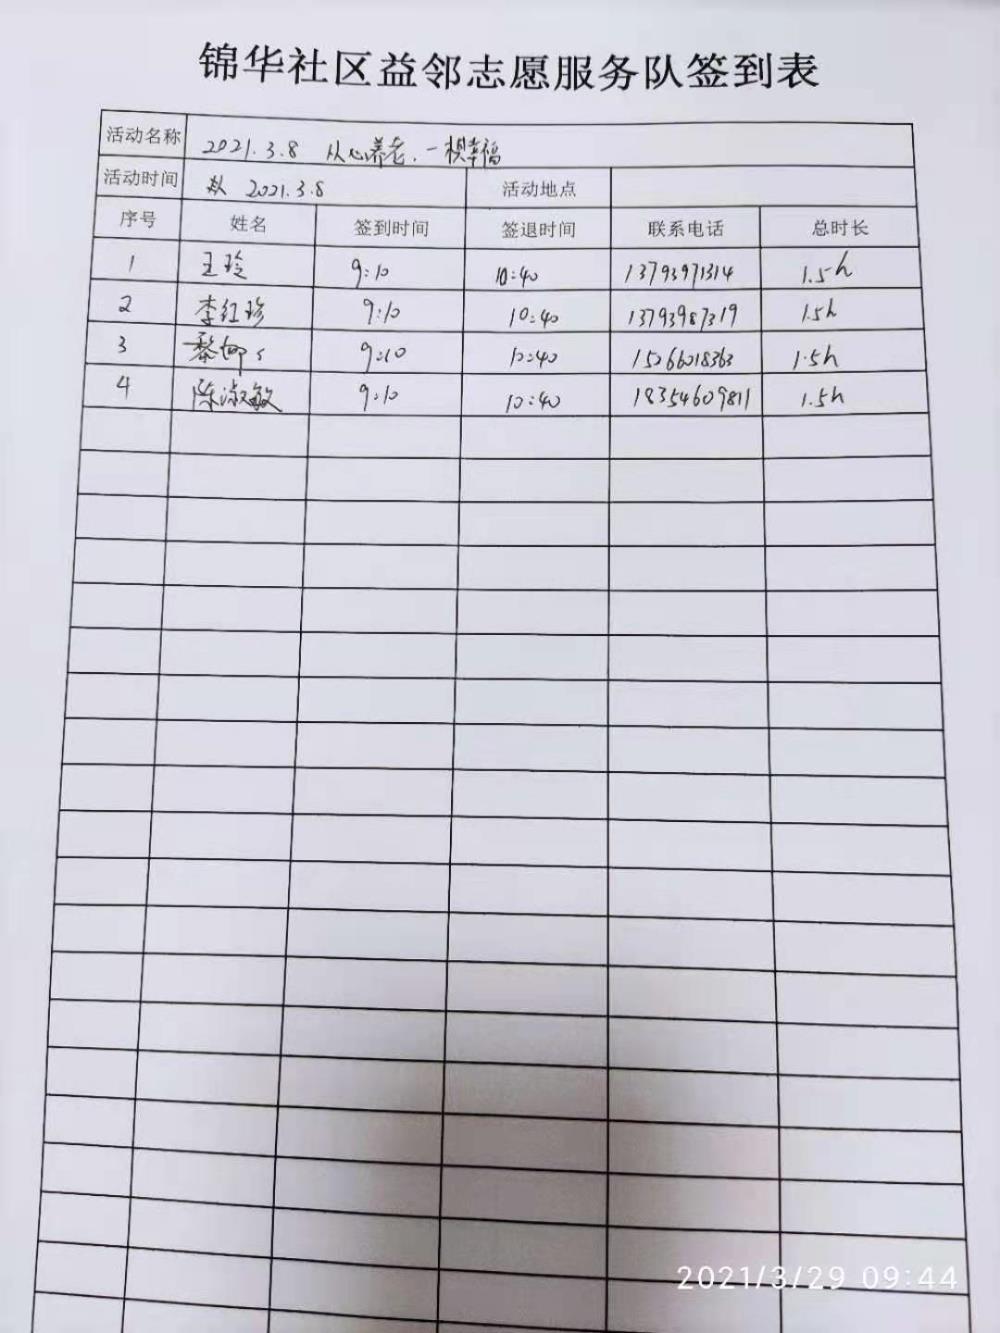 锦华社区益邻志愿服务队签到表
活动名称 2021.3.8 从心养老.一棋幸福
活动时间 2021.3.8 活动地点
序号 姓名 签到时间 签退时间 联系电话 总时长
1 王玲 9:10 10:40 13793971314 1.5h
2 李红珍 9:10 10:40 13793987319 1.5h
3 黎娜 9:10 10:40 15266018363 1.5h
4 陈淑敏 9:10 10:40 18354609811 1.5h
2021/3/29 09:44